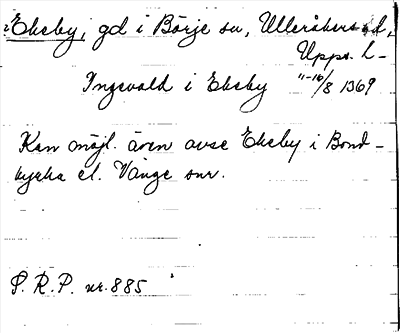 Ekeby, gd i Börje sn, Ulleråkers hd,
Upps. l-
Ingevald i Ekeby 11-16/8 1369
Kan möjl. även avse Ekeby i Bond-
kyrka el. Vänge snr.
S. R. P. nr. 885